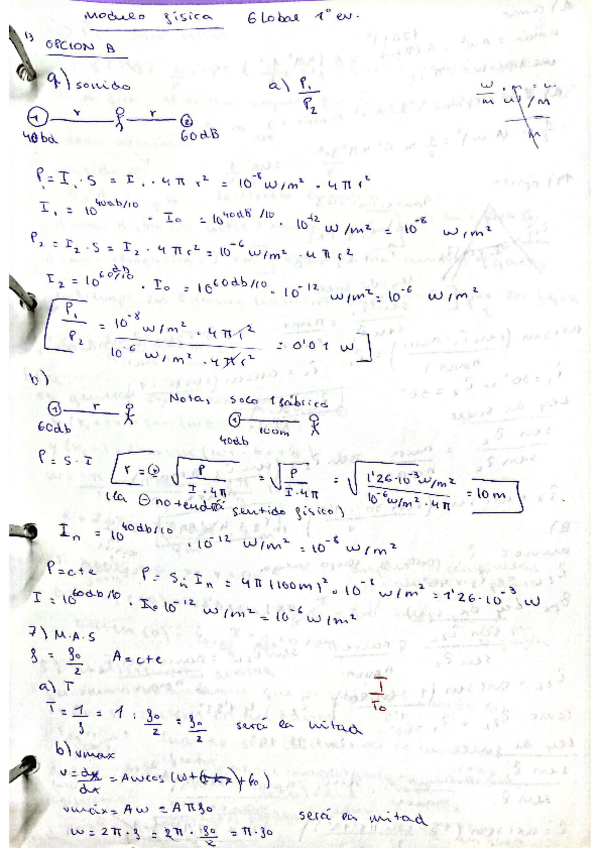 Modulo física Global 1º ev.
1) OPCION A
9) sonido a) P₁/P₂
① r r ②
60dB
P₁ = I₁ · S = I₁ · 4π r² = 10⁻⁸ w/m² · 4π r²
I₁ = 10^40db/10 · I₀ = 10^40dB/10 · 10⁻¹² w/m² = 10⁻⁸ w/m²
P₂ = I₂ · S = I₂ · 4π r² = 10⁻⁶ w/m² · 4π r²
I₂ = 10^60db/10 · I₀ = 10^60db/10 · 10⁻¹² w/m² = 10⁻⁶ w/m²
[P₁/P₂ = 10⁻⁸ w/m² · 4π r² / 10⁻⁶ w/m² · 4π r² = 0'01 w]
b)
Nota, solo 1 fábrica
① r ① 100m
60db 40db
P = S · I r = √(P / I · 4π) = √(P / I · 4π) = √(1'26 · 10⁻³ w/m² / 10⁻⁶ w/m² · 4π) = 10m
(la ⊖ no tendrá sentido físico)
Iₙ = 10^40db/10 · 10⁻¹² w/m² = 10⁻⁸ w/m²
P = cte P = Sₙ · Iₙ = 4π (100m)² · 10⁻⁸ w/m² = 1'26 · 10⁻³ w
I = 10^60db/10 · I₀ 10⁻¹² w/m² = 10⁻⁶ w/m²
7) M.A.S
f = f₀/2 A = cte
a) T T/T₀
T = 1/f = 1 : f₀/2 = f₀/2 será la mitad
b) vmax
v = dx/dx = Aw cos (wt + φ₀)
vmáx = Aw = Aπf₀ será la mitad
w = 2π · f = 2π · f₀/2 = π · f₀